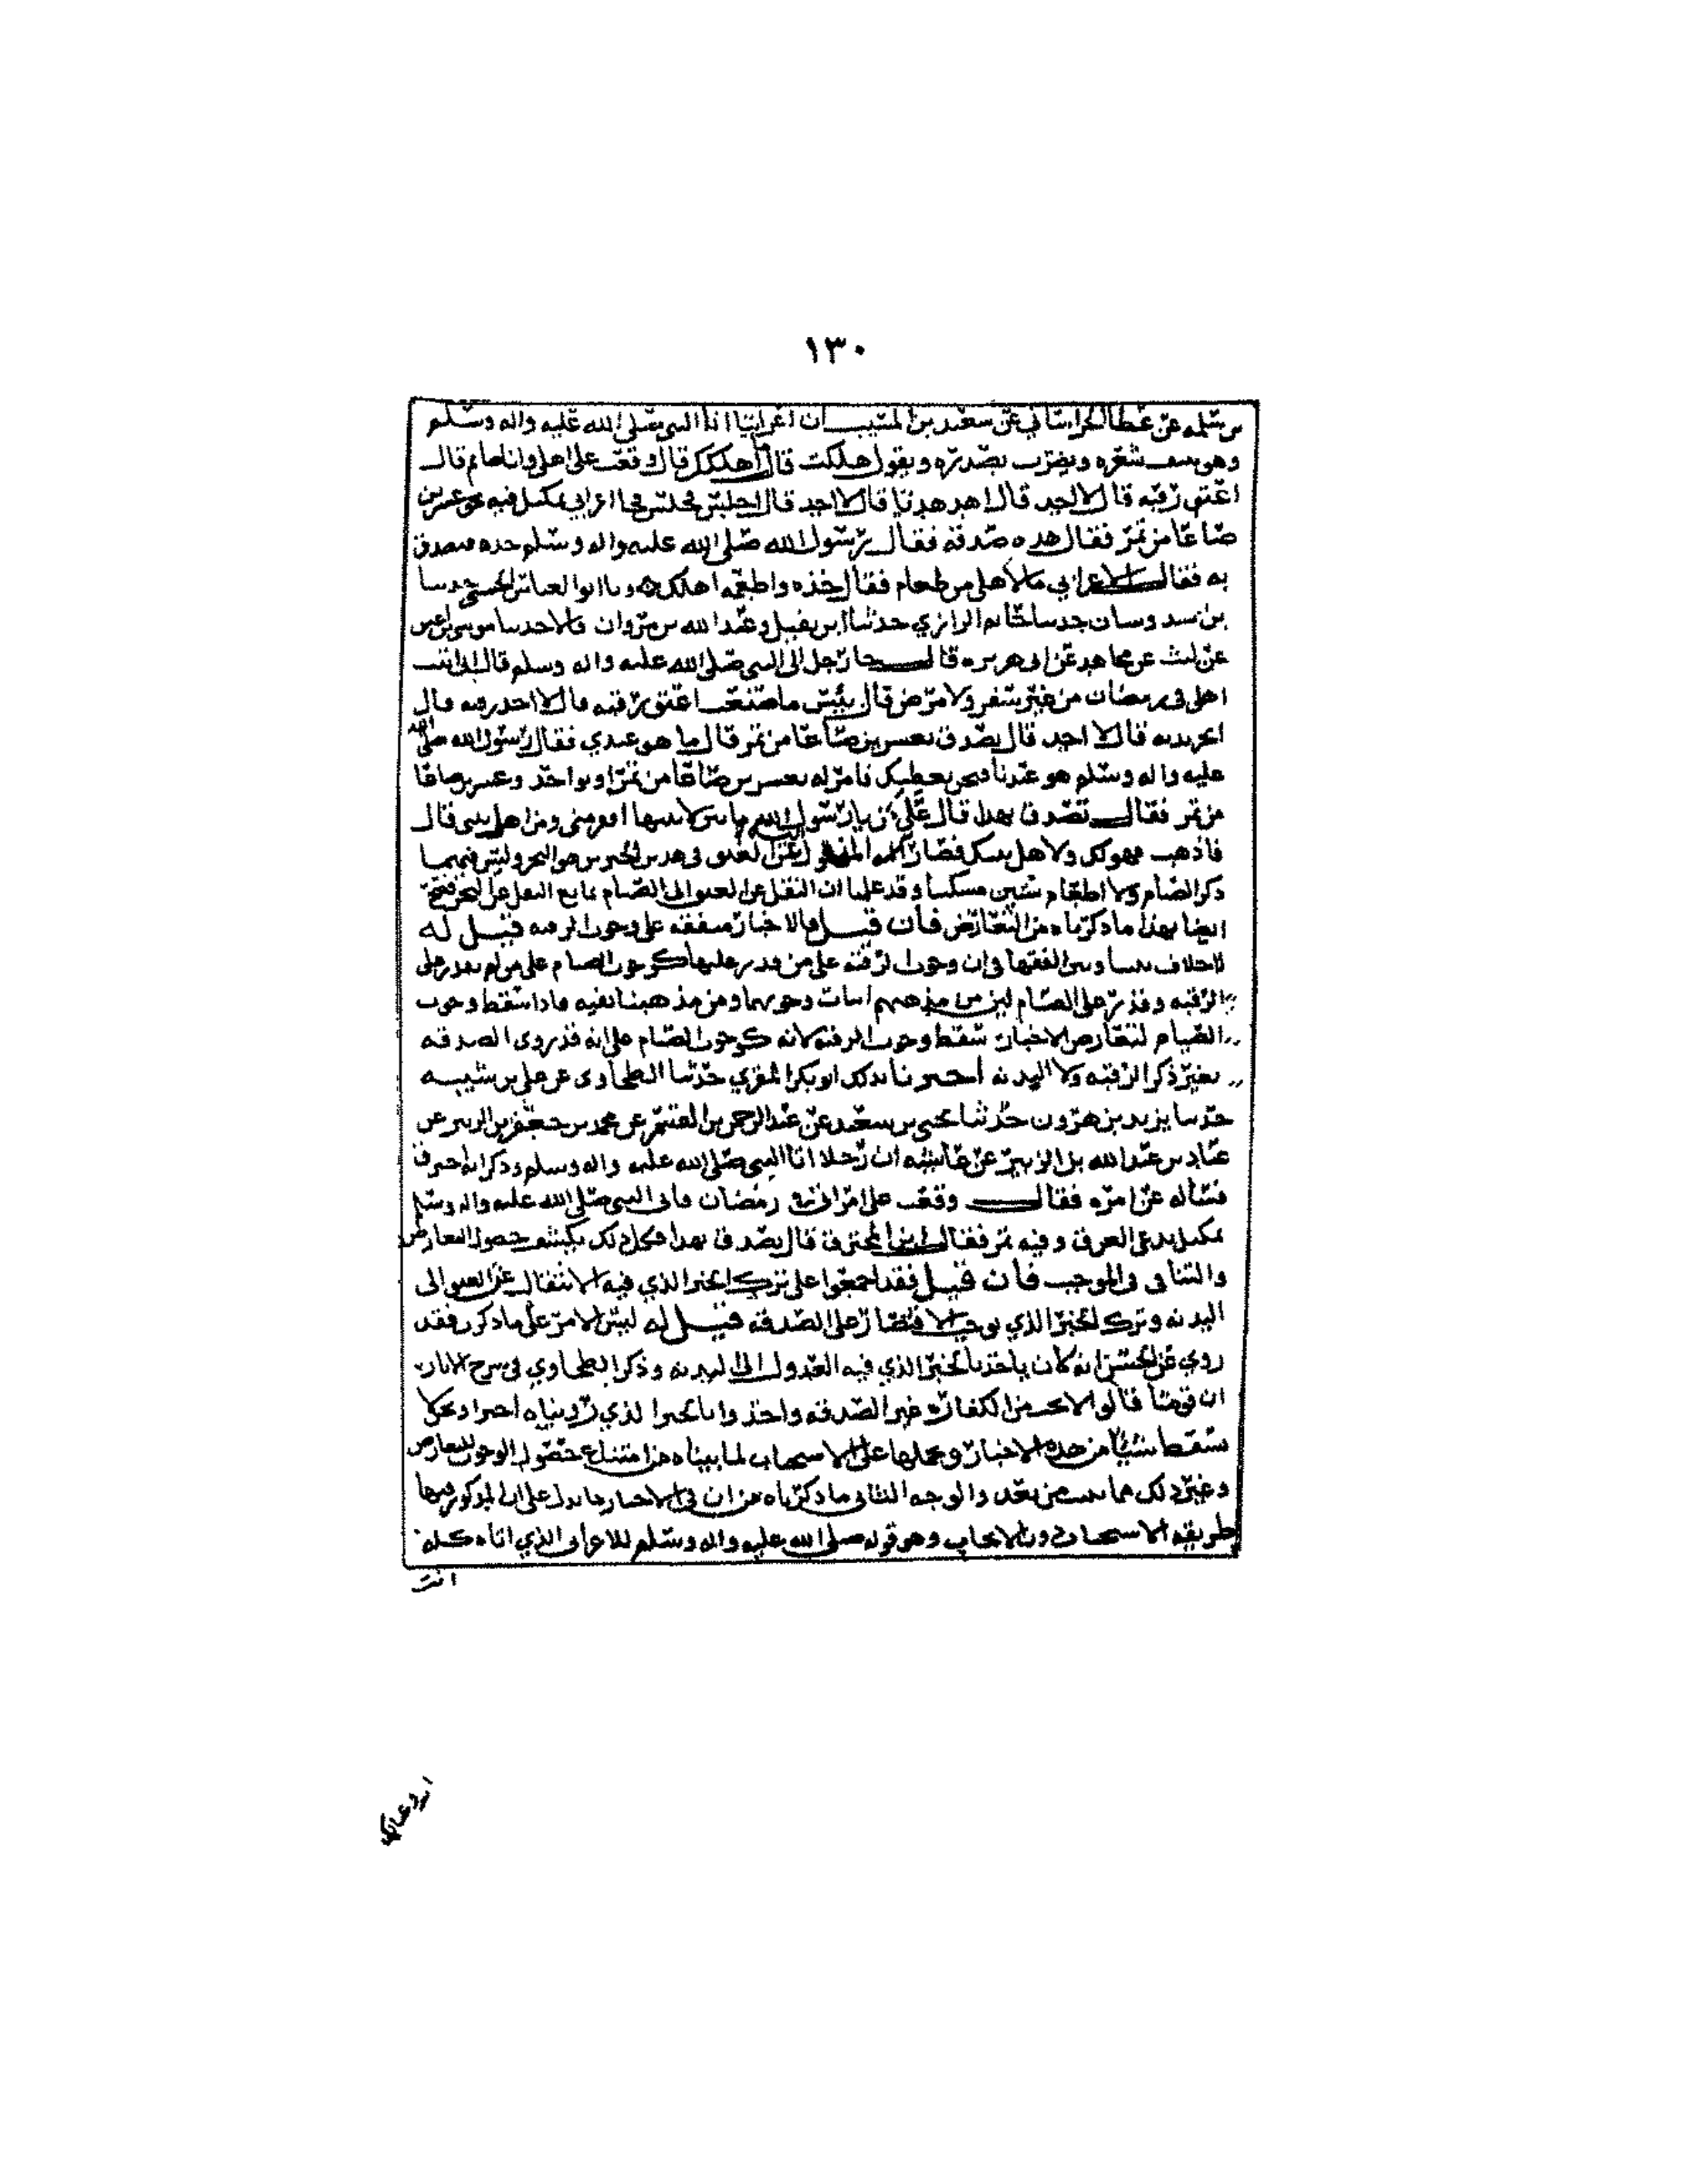 ١٣٠
بن سلمه عن عطا الخراساني عن سعيد بن المسيب ان اعرابيا اتا النبي صلى الله عليه واله وسلم
وهو ينتف شعره ويضرب بصدره ويقول هلكت قال ما اهلكك قال وقعت على اهلي وانا صايم قال
اعتق رقبه قال لا اجد قال اهد هديا قال لا اجد قال اجلس فجلس فجا اعرابي بمكتل فيه نحو عشرين
صاعا من تمر فقال هذه صدقة فقال رسول الله صلى الله عليه واله وسلم خذه فتصدق
به فقال الاعرابي ما لاهلي من طعام فقال خذه واطعمه اهلك وانا ابو العباس الحسني حدثنا
بن سد وسان حدثنا حاتم الرازي حدثنا ابن نفيل وعبد الله بن مروان قالا حدثنا موسى بن اعين
عن ليث عن مجاهد عن ابي هريره قال جا رجل الى النبي صلى الله عليه واله وسلم قال اني اتيت
اهلي في رمضان من غير سفر ولا مرض قال بئس ما صنعت اعتق رقبه قال لا اجد رقبه قال
انحر بدنه قال لا اجد قال تصدق بعشرين صاعا من تمر قال ما هو عندي فقال رسول الله صلى الله
عليه واله وسلم هو عندنا نحن نعطيك فامر له بعشرين صاعا من تمر او بواحد وعشرين صاعا
من تمر فقال تصدق بهذا قال على من يا رسول الله ما بين لابتيها افقر مني ومن اهل بيتي قال
فاذهب فهو لك ولاهل بيتك فصار المنقول اليه عن العتق في هذين الخبرين هو النحر وليس فيهما
ذكر الصيام ولا اطعام ستين مسكينا وقد علمنا ان النقل عن العتق الى الصيام مانع النقل عن النحر فصح
ايضا بهذا ما ذكرناه من التعارض فان قيل فالاخبار متفقه على وجوب الرقبه قيل له
لا خلاف بيننا وبين الفقها في ان وجوب الرقبه على من قدر عليها كوجوب الصيام على من لم يقدر على
الرقبه وقدر على الصيام لان من مذهبهم اثبات وجوبهما ومن مذهبنا نفيه فاذا سقط وجوب
الصيام لتعارض الاخبار سقط وجوب الرقبه لانه كوجوب الصيام على انه قد روى الصدقه
بغير ذكر الرقبه ولا البدنه اخبرنا بذلك ابو بكر المقري حدثنا الطحاوى عن علي بن شيبه
حدثنا يزيد بن هرون حدثنا يحيى بن سعيد عن عبد الرحمن بن القسم عن محمد بن جعفر بن الزبير عن
عباد بن عبد الله بن الزبير عن عايشه ان رجلا اتا النبي صلى الله عليه واله وسلم وذكر انه احترق
فساله عن امره فقال وقعت على امراتي في رمضان فاتى النبي صلى الله عليه واله وسلم
بمكتل يدعى العرق وفيه تمر فقال اين المحترق قال تصدق بهذا فكل ذلك يكشف حصول التعارض
والتنافى في الموجب فان قيل فقد اجمعوا على ترك الخبر الذي فيه الانتقال عن العتق الى
البدنه وترك الخبر الذي يوجب الاقتصار على الصدقه قيل له ليس الامر على ما ذكرت فقد
روي عن الحسن انه كان ياخذ بالخبر الذي فيه العدول الى البدنه وذكر الطحاوي في شرح الاثار
ان قوما قالوا لا يجب من الكفاره غير الصدقه واخذوا بالخبر الذي رويناه اخيرا ونحن لا
نسقط شيئا من هذه الاخبار ونحملها على الاستحباب لما بيناه من امتناع حصول الوجوب للتعارض
وغير ذلك مما من بعد والوجه الثاني ما ذكرناه من ان في الاخبار ما يدل على ان المذكور فيها
طريقه الاستحباب دون الايجاب وهو قوله صلى الله عليه واله وسلم للاعرابي الذي اتاه كله
انت